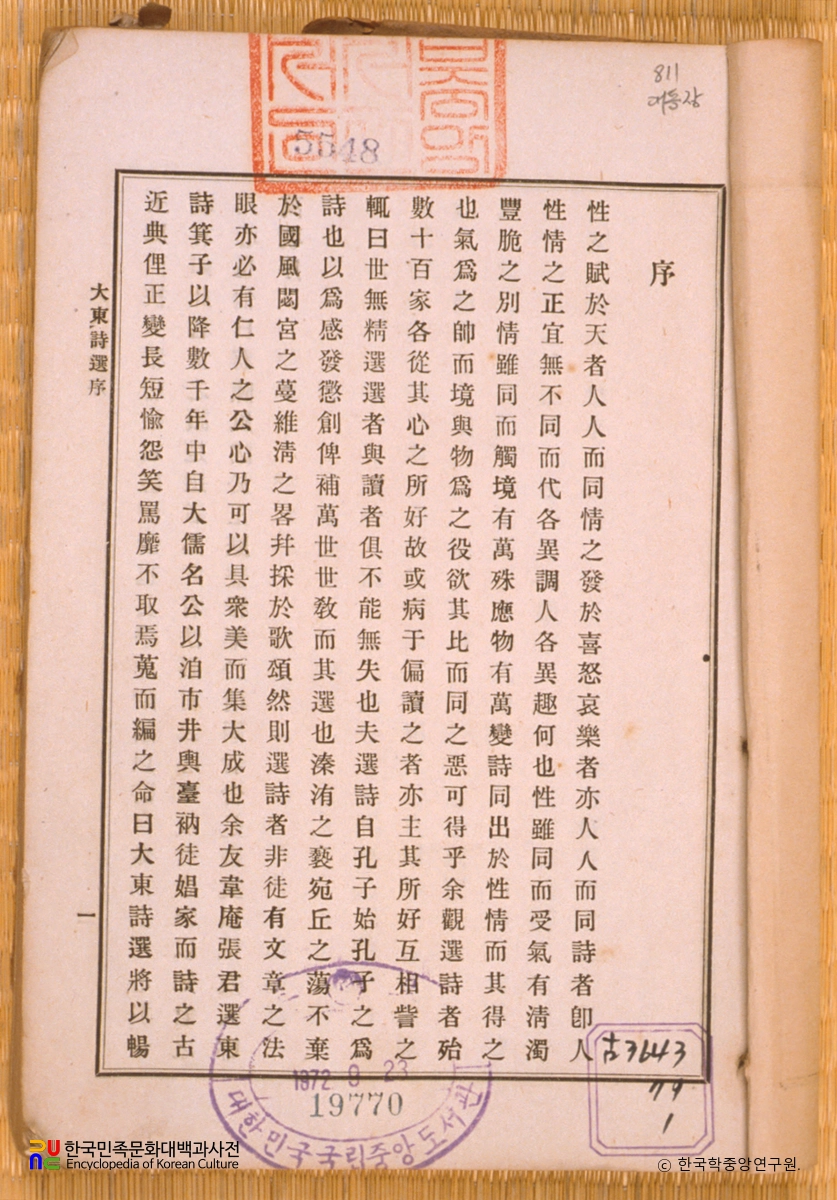 811
5548
序
性之賦於天者人人而同情之發於喜怒哀樂者亦人人而同詩者卽人
性情之正宜無不同而代各異調人各異趣何也性雖同而受氣有淸濁
豐脆之別情雖同而觸境有萬殊應物有萬變詩同出於性情而其得之
也氣爲之帥而境與物爲之役欲其比而同之惡可得乎余觀選詩者殆
數十百家各從其心之所好故或病于偏讀之者亦主其所好互相訾之
輒曰世無精選選者與讀者俱不能無失也夫選詩自孔子始孔子之爲
詩也以爲感發懲創俾補萬世世敎而其選也溱洧之褻宛丘之蕩不棄
於國風閟宮之蔓維淸之畧幷採於歌頌然則選詩者非徒有文章之法
眼亦必有仁人之公心乃可以具衆美而集大成也余友韋庵張君選東
詩箕子以降數千年中自大儒名公以洎市井輿臺衲徒娼家而詩之古
近典俚正變長短愉怨笑罵靡不取焉蒐而編之命曰大東詩選將以暢
大東詩選序
一
古3643
79
1
1972 9 23
19770
대한민국국립중앙도서관
한국민족문화대백과사전
Encyclopedia of Korean Culture
© 한국학중앙연구원.